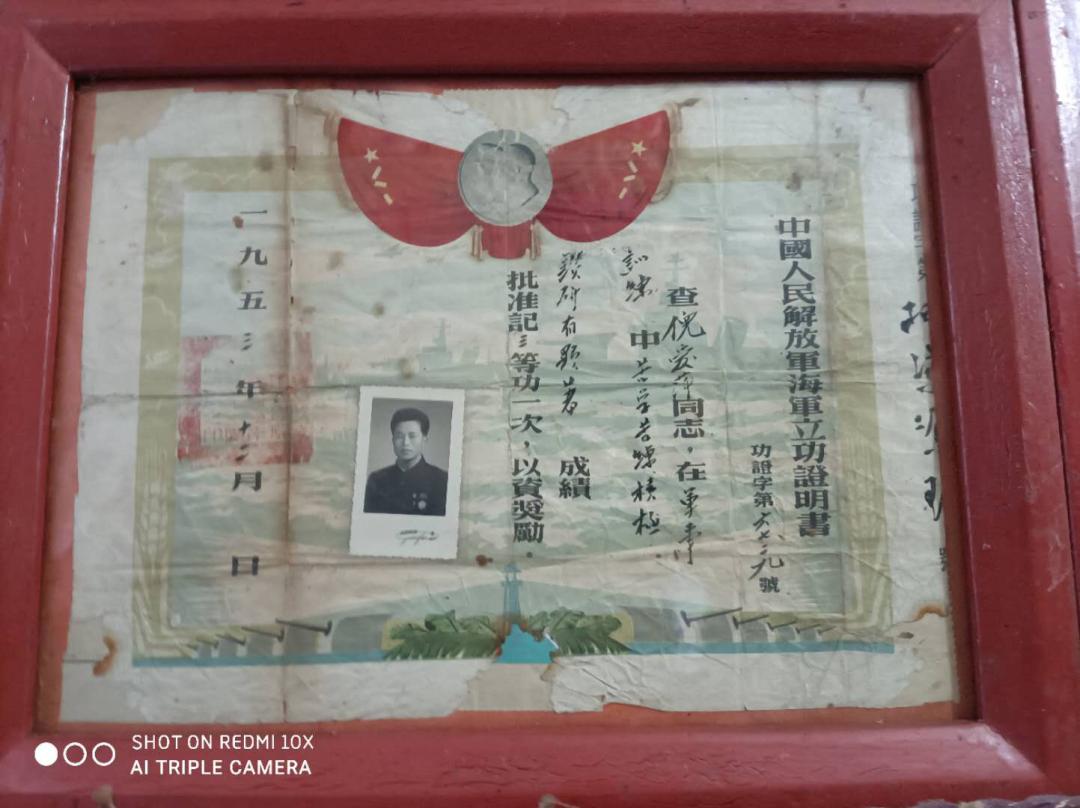 中國人民解放軍海軍立功證明書
功證字第六七二九號
查倪愛萍同志，在軍事
訓練中苦學苦練積極
鑽研有顯著成績
批准記三等功一次，以資獎勵。
一九五三年十二月 日
SHOT ON REDMI 10X
AI TRIPLE CAMERA